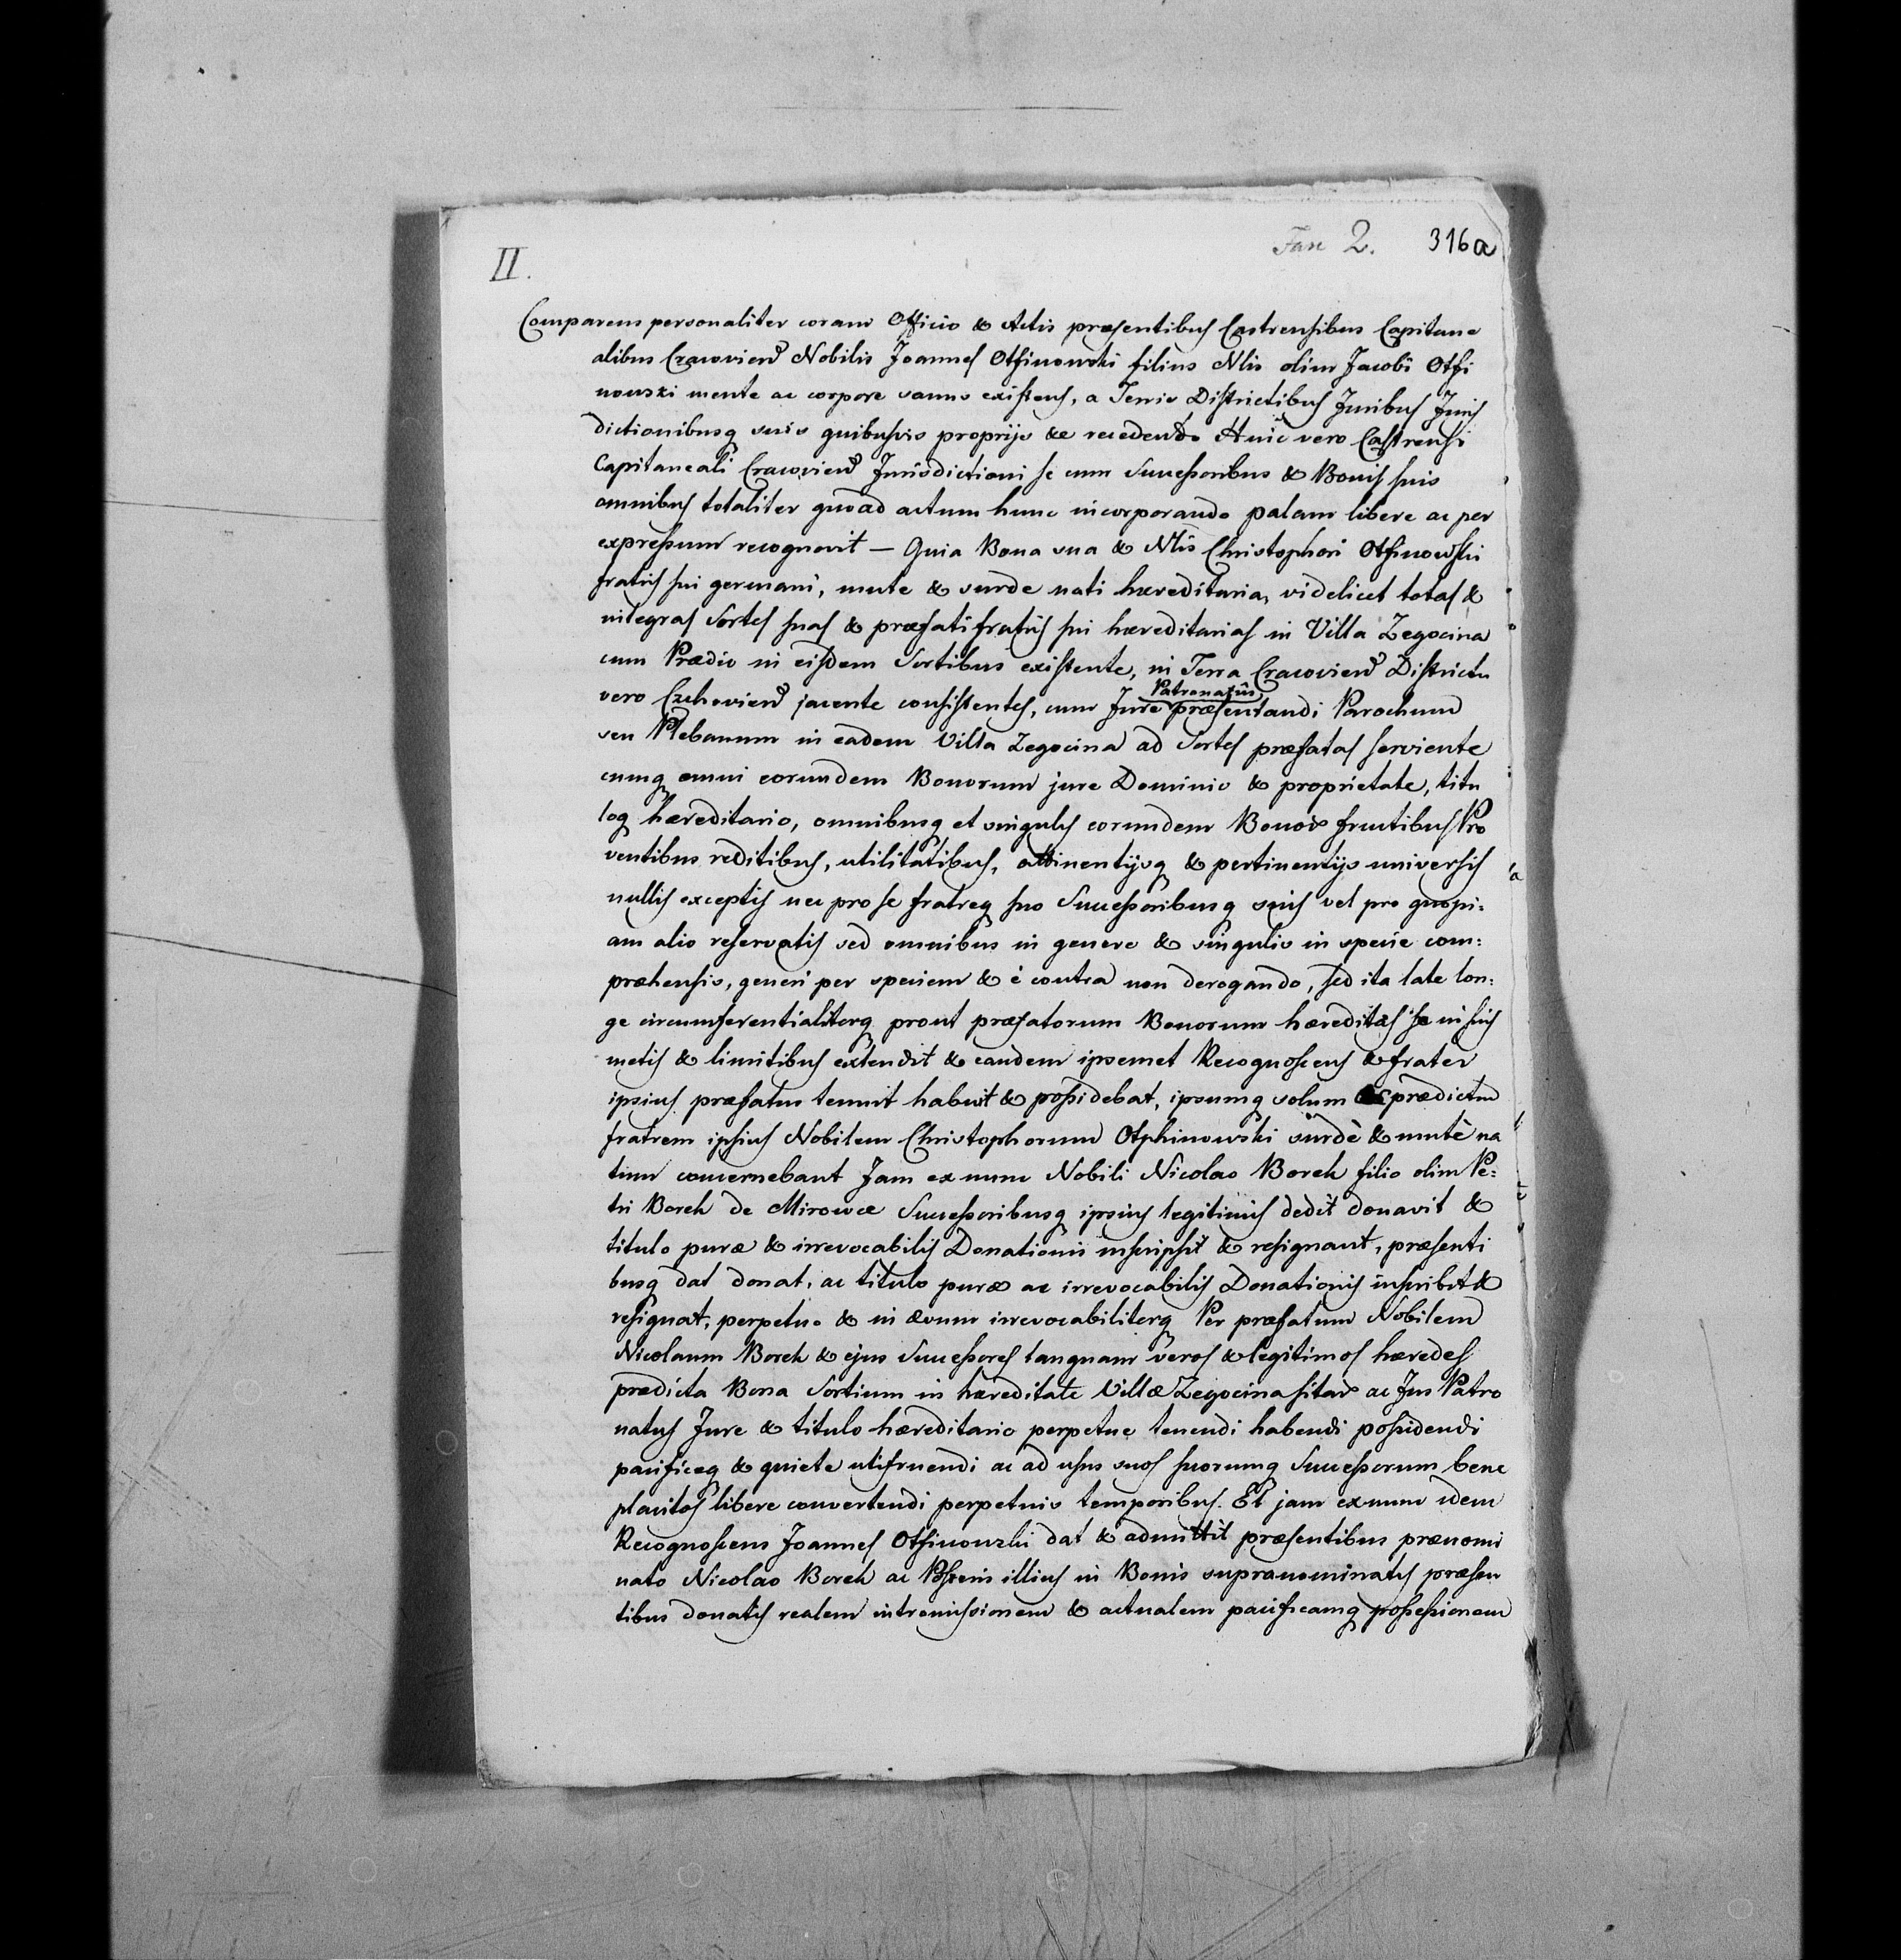 II.
Fasc 2. 316a
Comparens personaliter coram Officio & Actis præsentibus Castrensibus Capitane
alibus Cracovien Nobilis Joannes Otfinowski filius Nlis olim Jacobi Otfi
nowski mente ac corpore sanus existens, a Terris Districtibus Juribus Juris
dictionibusq suis quibusvis proprijs &c recedendo Huic vero Castrensi
Capitaneali Cracovien Jurisdictioni se cum Successoribus & Bonis suis
omnibus totaliter quoad actum hunc incorporando palam libere ac per
expressum recognovit — Quia Bona sua & Nlis Christophori Otfinowski
fratris sui germani, mute & surde nati hæreditaria, videlicet totas &
integras Sortes suas & præfati fratris sui hæreditarias in Villa Zegocina
cum Prædio in eisdem Sortibus existente, in Terra Cracovien Districtu
vero Czchovien jacente consistentes, cum Jure præsentandi Parochum
Patronatûs
seu Plebanum in eadem Villa Zegocina ad Sortes præfatas serviente
cumq omni eorundem Bonorum jure Dominio & proprietate, titu
loq hæreditario, omnibusq et singulis eorundem Bonor fructibus Pro
ventibus reditibus, utilitatibus, attinentijsq & pertinentijs universis
nullis exceptis nec pro se fratreq suo Successoribusq suis vel pro quopi:
am alio reservatis sed omnibus in genere & singulis in specie com:
præhensis, generi per speciem & è contra non derogando, sed ita late lon:
ge circumferentialiterq prout præfatorum Bonorum hæreditas se in suis
metis & limitibus extendit & eandem ipsemet Recognoscens & frater
ipsius præfatus tenuit habuit & possidebat, ipsumq solum ac prædictum
fratrem ipsius Nobilem Christophorum Otphinowski surdè & mutè na
tum concernebant Jam ex nunc Nobili Nicolao Borek filio olim Pe:
tri Borek de Mirowce Successoribusq ipsius legitimis dedit donavit &
titulo puræ & irrevocabilis Donationis inscripsit & resignavit, præsenti
busq dat donat, ac titulo puræ ac irrevocabilis Donationis inscribit &
resignat, perpetuo & in ævum irrevocabiliterq Per præfatum Nobilem
Nicolaum Borek & ejus Successores tanquam veros & legitimos hæredes
prædicta Bona Sortium in hæreditate Villæ Zegocina sitar ac Jus Patro
natus Jure & titulo hæreditario perpetue tenendi habendi possidendi
pacificeq & quiete utifruendi ac ad usus suos suorumq Successorum bene
placitos libere convertendi perpetuis temporibus. Et jam ex nunc idem
Recognoscens Joannes Otfinowski dat & admittit præsentibus prænomi
nato Nicolao Borek ac Posteris illius in Bonis supranominatis præsen
tibus donatis realem intromissionem & actualem pacificamq possessionem